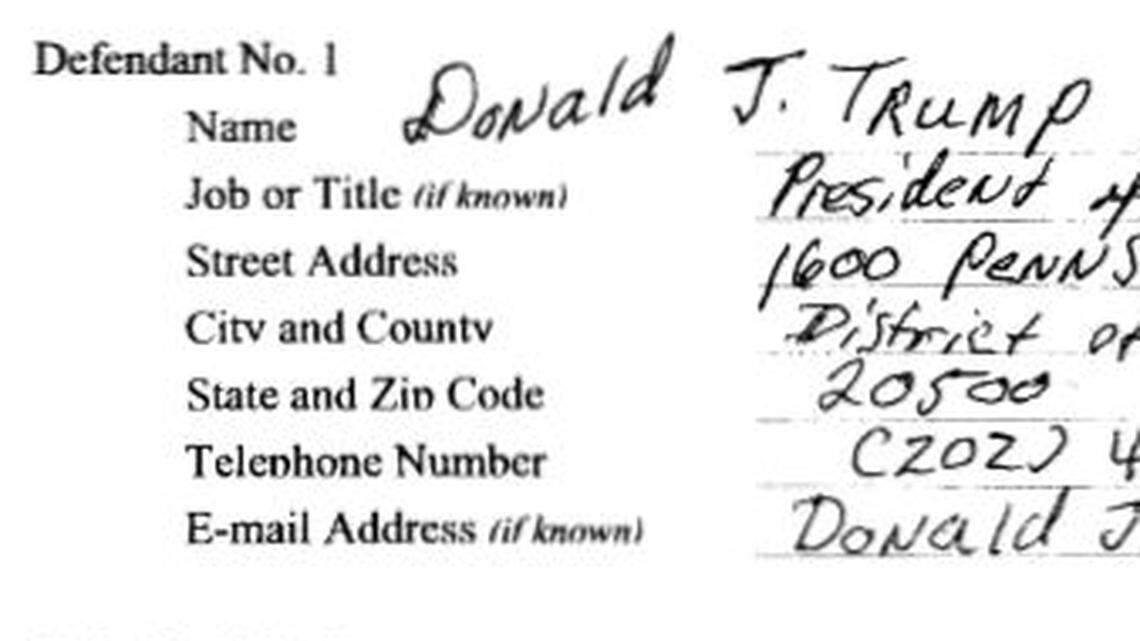 Defendant No. 1
Name Donald J. TRUMP
Job or Title (if known) President
Street Address 1600 PENNS
City and County District of
State and Zip Code 20500
Telephone Number (202) 4
E-mail Address (if known) Donald J